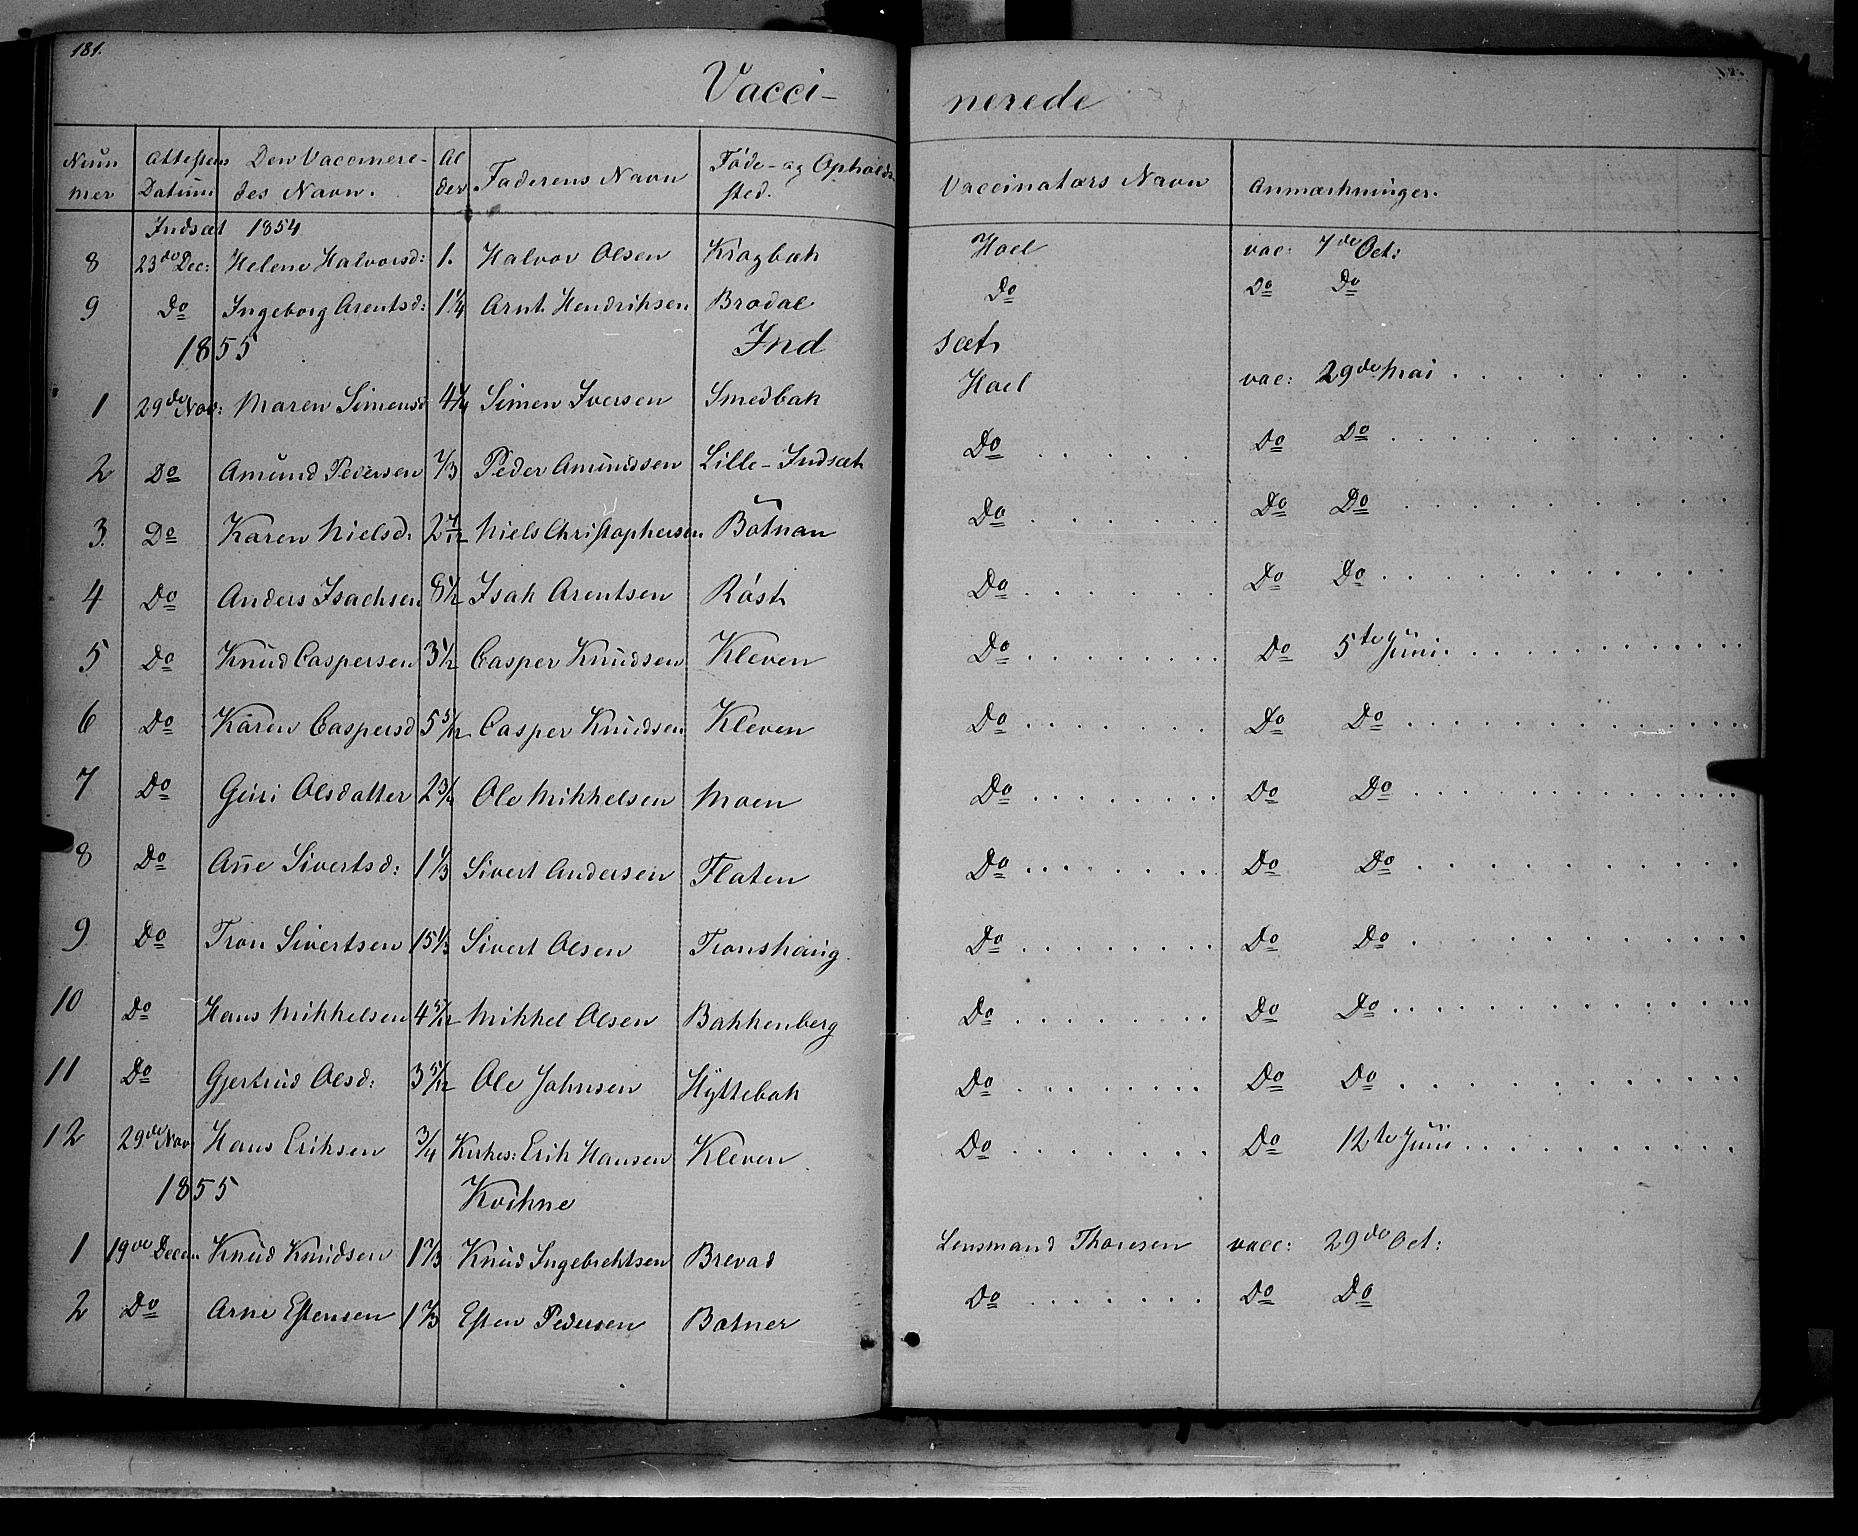 181.
Vacci- nerede
Num mer | Attestens Datum | Den Vaccinere- des Navn. | Al der | Faderens Navn | Føde- og Opholds sted. | Vaccinators Navn | Anmærkninger.
Indsæt 1854
8 | 23de Dec: | Helene Halvorsd: | 1. | Halvor Olsen | Kragbak | Hoel | vac: 7de Oct:
9 | Do | Ingeborg Arentsd: | 1 1/4 | Arnt Hendriksen | Brodal | Do | Do Do
1855 Ind sæt
1 | 29de Nov: | Maren Simensd | 4 1/4 | Simen Iversen | Smedbak | Hoel | vac: 29de Mai . . . . . . .
2 | Do | Amund Pedersen | 1/3 | Peder Amundsen | Lille-Indsæt | Do . . . . . | Do Do . . . . . . . .
3. | Do | Karen Nielsd. | 2 7/12 | Niels Christophersen | Botnan | Do . . . . . | Do Do . . . . . . . .
4 | Do | Anders Isachsen | 8 1/2 | Isak Arentsen | Røst | Do . . . . . | Do Do . . . . . . . .
5 | Do | Knud Caspersen | 3 1/2 | Casper Knudsen | Kleven | Do . . . . . | Do 5te Juni. . . . . . . . .
6 | Do | Karen Caspersd | 5 5/12 | Casper Knudsen | Kleven | Do . . . . . | Do Do . . . . . . . .
7 | Do | Guri Olsdatter | 2 3/4 | Ole Mikkelsen | Moen | Do . . . . . | Do Do . . . . . . . .
8 | Do | Ane Sivertsd: | 1 1/3 | Sivert Andersen | Flaten | Do . . . . . | Do Do . . . . . . . .
9 | Do | Tron Sivertsen | 15 1/3 | Sivert Olsen | Tronshaug | Do . . . . . | Do Do . . . . . . . .
10 | Do | Hans Mikkelsen | 4 5/12 | Mikkel Olsen | Bakkenberg | Do . . . . . | Do Do . . . . . . . .
11 | Do | Gjertrud Olsd: | 3 5/12 | Ole Johnsen | Hyttebak | Do . . . . . | Do Do . . . . . . . .
12 | 29de Nov | Hans Eriksen | 3/4 | Kirkes: Erik Hansen | Kleven | Do . . . . . | Do 12te Juni . . . . . . . .
1855 Kvikne
1 | 19de Decem | Knud Knudsen | 1 2/3 | Knud Ingebrechtsen | Brevad | Lensmand Thoresen | vacc: 29de Oct:
2 | Do | Arne Estensen | 1 2/3 | Esten Pedersen | Botner | Do . . . . . | Do Do